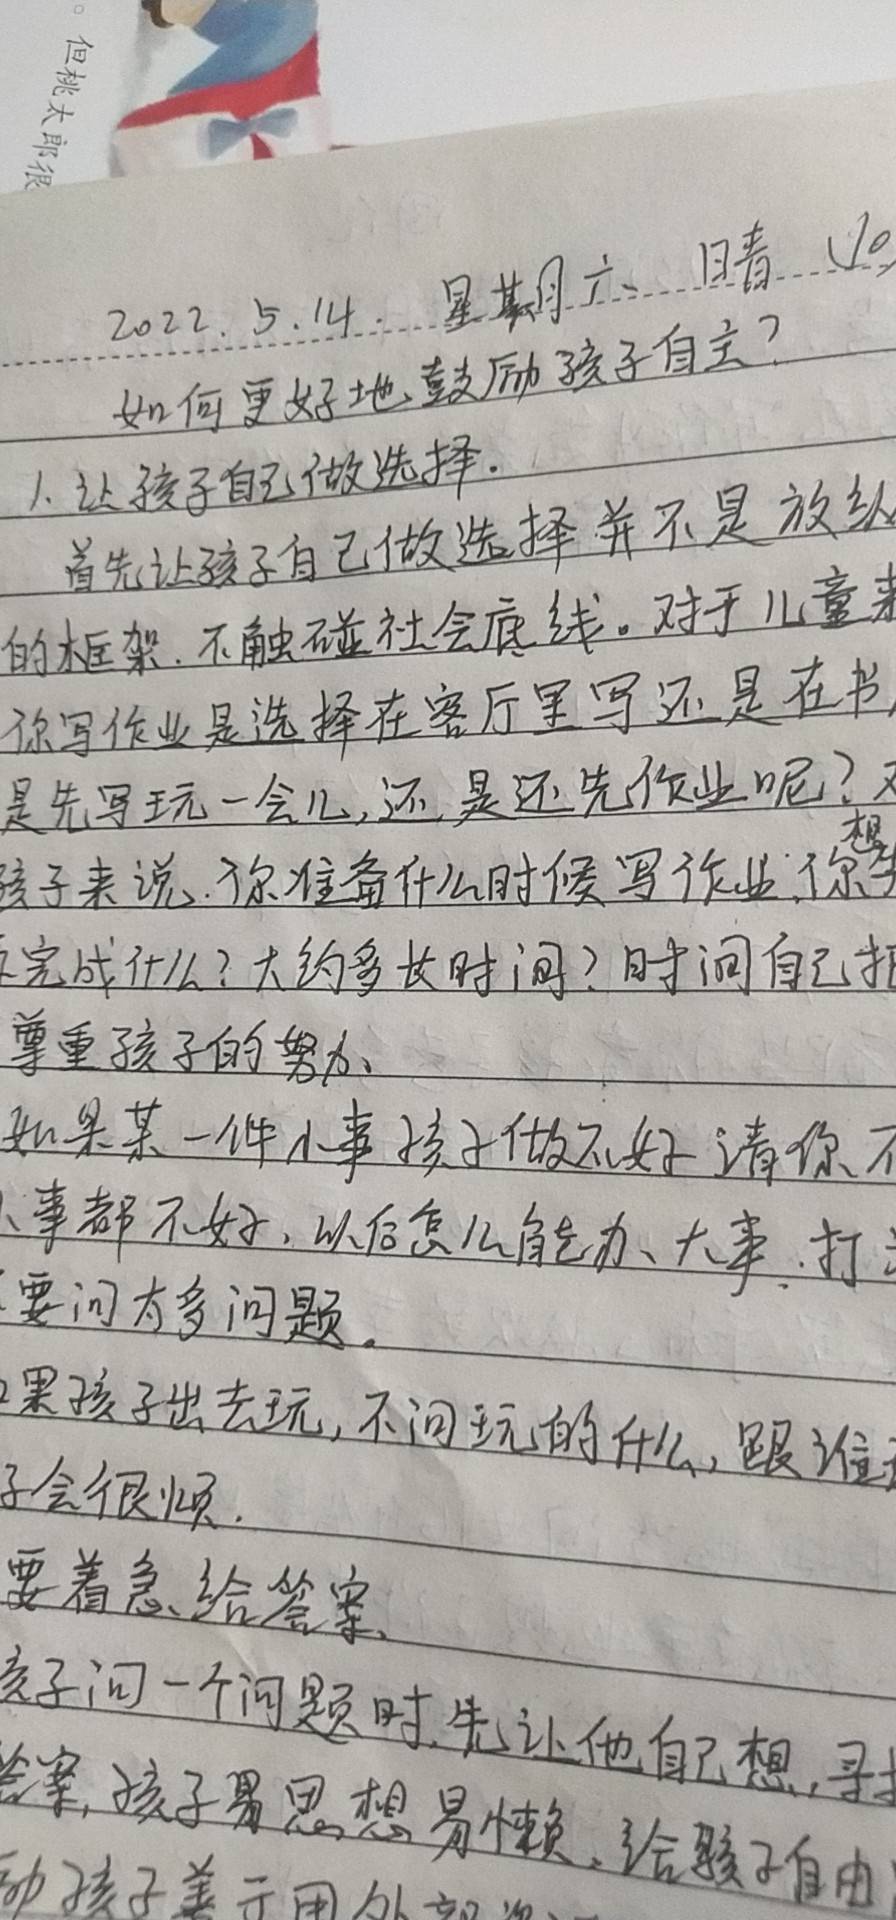 。但桃太郎很
2022.5.14. 星期六、 晴
如何更好地鼓励孩子自主？
1.让孩子自己做选择.
首先让孩子自己做选择并不是放纵
的框架.不触碰社会底线。对于儿童来
你写作业是选择在客厅里写还是在书
是先写玩一会儿,还是还先作业呢？
孩子来说.你准备什么时候写作业.你想
完成什么？大约多长时间？时间自己
尊重孩子的努力、
如果某一件小事孩子做不好请你不
事都不好、以后怎么能办、大事.打
要问太多问题。
果孩子出去玩,不问玩的什么,跟谁
子会很烦.
要着急给答案、
孩子问一个问题时.先让他自己想,寻
答案,孩子易思想易懒.给孩子自由
励孩子善于用外部